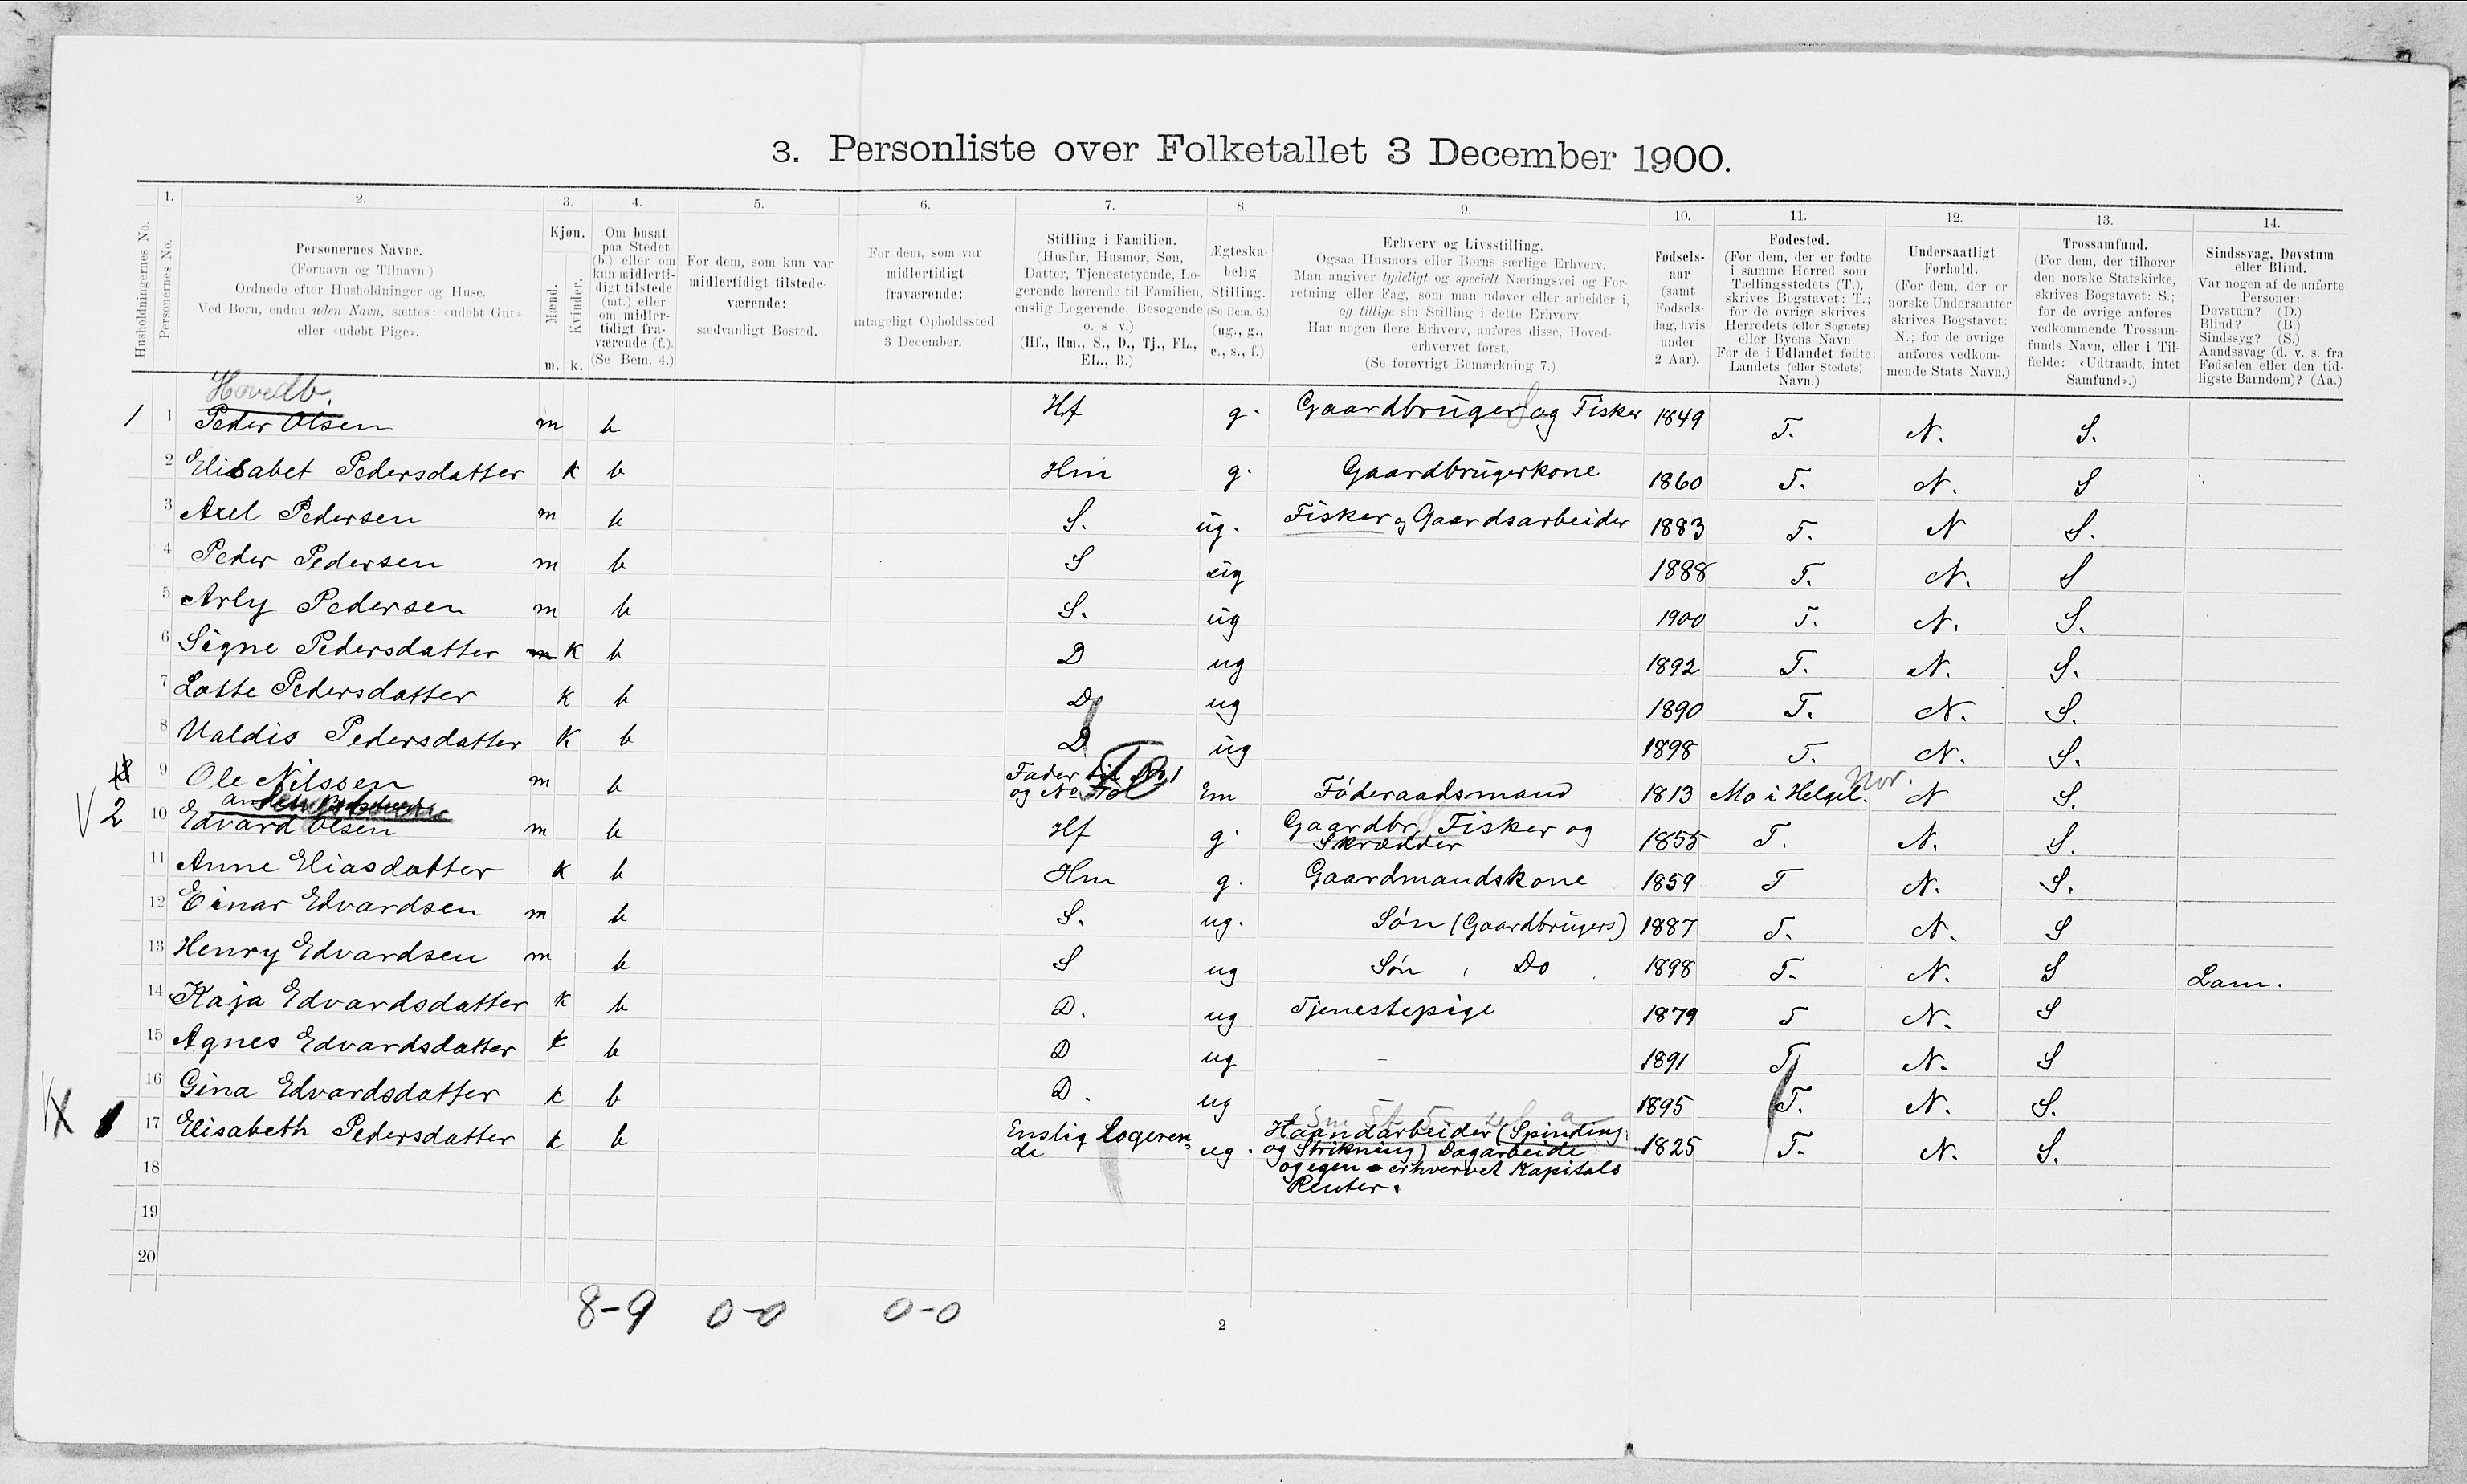 3. Personliste over Folketallet 3 December 1900.
1. 2. 3. 4. 5. 6. 7. 8. 9. 10. 11. 12. 13. 14.
Husholdningernes No.
Personernes No.
Personernes Navne.
(Fornavn og Tilnavn)
Ordnede efter Husholdninger og Huse.
Ved Børn, endnu uden Navn, sættes: «udøbt Gut»
eller «udøbt Pige».
Kjøn.
Mænd.
Kvinder.
m. k.
Om bosat
paa Stedet
(b.) eller om
kun midlerti-
digt tilstede
(mt.) eller
om midler-
tidigt fra-
værende (f.).
(Se Bem. 4.)
For dem, som kun var
midlertidigt tilstede-
værende:
sædvanligt Bosted.
For dem, som var
midlertidigt
fraværende:
antageligt Opholdssted
3 December.
Stilling i Familien.
(Husfar, Husmor, Søn,
Datter, Tjenestetyende, Lo-
gerende hørende til Familien,
enslig Logerende, Besøgende
o. s v.)
(Hf., Hm., S., D., Tj., FL.,
EL., B.)
Ægteska-
belig
Stilling.
(Se Bem. 6.)
(ug., g.,
e., s., f.)
Erhverv og Livsstilling.
Ogsaa Husmors eller Børns særlige Erhverv.
Man angiver tydeligt og specielt Næringsvei og For-
retning eller Fag, som man udøver eller arbeider i,
og tillige sin Stilling i dette Erhverv.
Har nogen flere Erhverv, anføres disse, Hoved-
erhvervet først.
(Se forøvrigt Bemærkning 7.)
Fødsels-
aar
(samt
Fødsels-
dag, hvis
under
2 Aar).
Fødested.
(For dem, der er fødte
i samme Herred som
Tællingsstedets (T.),
skrives Bogstavet: T.;
for de øvrige skrives
Herredets (eller Sognets)
eller Byens Navn
For de i Udlandet fødte:
Landets (eller Stedets)
Navn.)
Undersaatligt
Forhold.
(For dem, der er
norske Undersaatter
skrives Bogstavet:
N.; for de øvrige
anføres vedkom-
mende Stats Navn.)
Trossamfund.
(For dem, der tilhører
den norske Statskirke,
skrives Bogstavet: S.;
for de øvrige anføres
vedkommende Trossam-
funds Navn, eller i Til-
fælde: «Udtraadt, intet
Samfund».)
Sindssvag, Døvstum
eller Blind.
Var nogen af de anførte
Personer:
Døvstum? (D.)
Blind? (B.)
Sindssyg? (S.)
Aandssvag (d. v. s. fra
Fødselen eller den tid-
ligste Barndom)? (Aa.)
Hovedb.
1 1 Peder Olsen m b Hf g. Gaardbruger og Fisker 1849 T. N. S.
2 Elisabet Pedersdatter k b Hm g. Gaardbrugerkone 1860 T. N. S
3 Axel Pedersen m b S. ug. Fisker og Gaardsarbeider 1883 T. N S.
4 Peder Pedersen m b S ug 1888 T. N. S
5 Arly Pedersen m b S. ug 1900 T. N. S.
6 Signe Pedersdatter m k b D ug 1892 T. N. S.
7 Lotte Pedersdatter k b D ug 1890 T. N. S.
8 Valdis Pedersdatter k b D ug 1898 T. N. S.
9 Ole Nilssen m b Fader til No 1
og No Em Föderaadsmand 1813 Mo i Helgel. Nor. N S.
2 10 Edvard Olsen m b Hf g. Gaardbr. Fisker og
Skrædder 1855 T. N. S.
11 Anne Eliasdatter k b Hm g. Gaardmandskone 1859 T N. S.
12 Einar Edvardsen m b S. ug. Sön (Gaardbrugers) 1887 T. N. S
13 Henry Edvardsen m b S ug Sön Do 1898 T. N. S Lam.
14 Kaja Edvardsdatter k b D. ug Tjenestepige 1879 T N. S
15 Agnes Edvardsdatter k b D ug - 1891 T N. S
16 Gina Edvardsdatter k b D. ug 1895 T. N. S.
17 Elisabeth Pedersdatter k b Enslig Logeren-
de ug. Haandarbeider (Spinding
og Strikning) Dagarbeide
og egen erhvervet Kapitals
Renter. 1825 T. N. S.
18
19
20
8-9 0-0 0-0
2